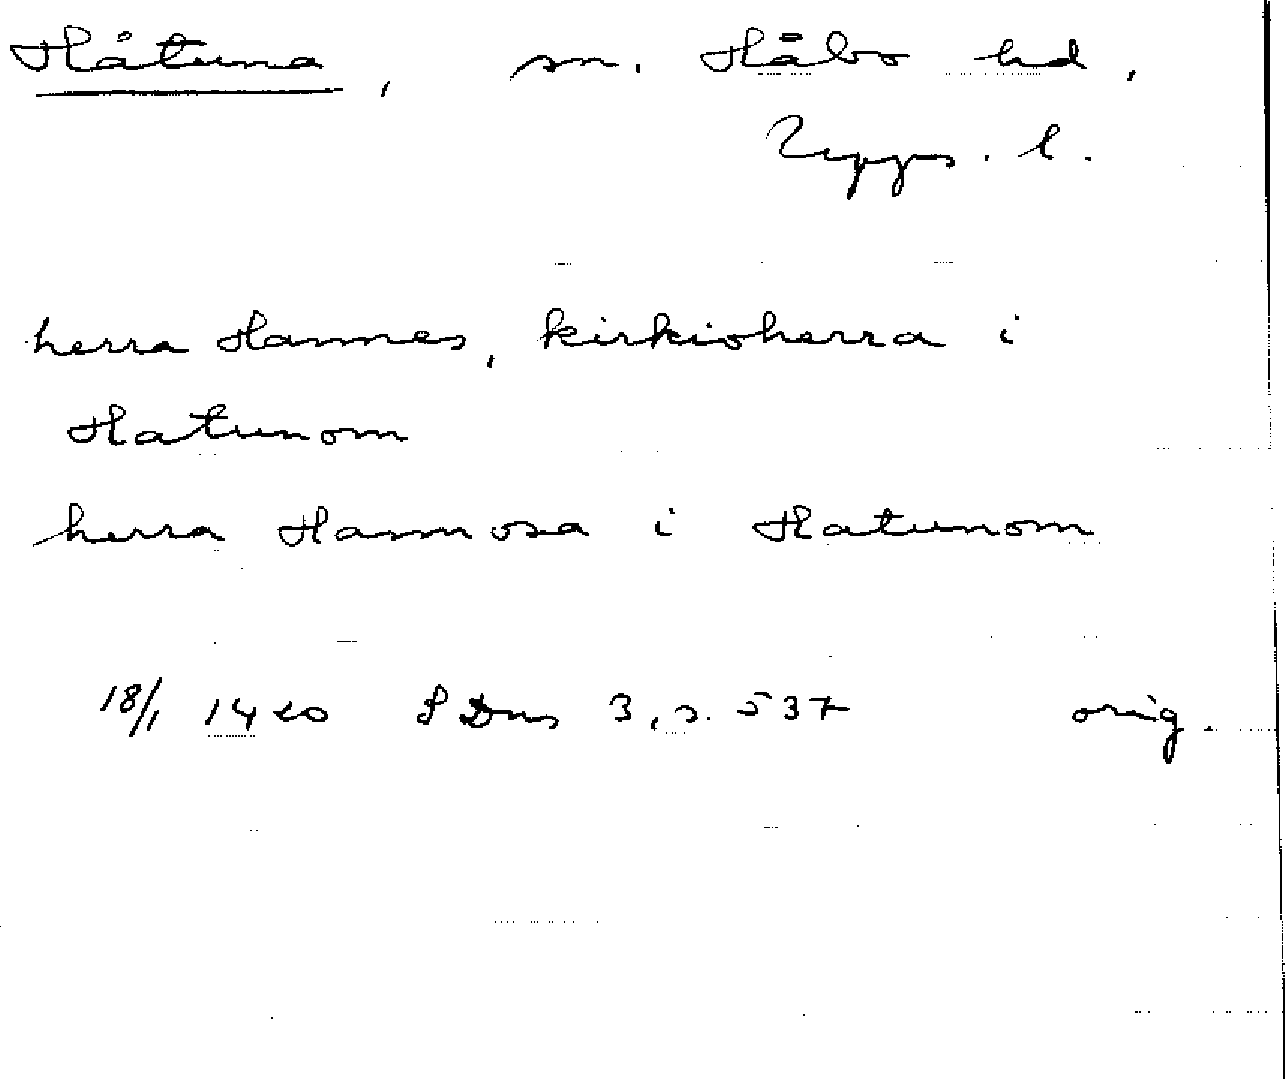 Håtuna, sn. Håbo hd,
Upps. l.
herra Hannes, kirkioherra i
Hatunom
herra Hannosa i Hatunom
18/1 1420 SDns 3, s. 537 orig.